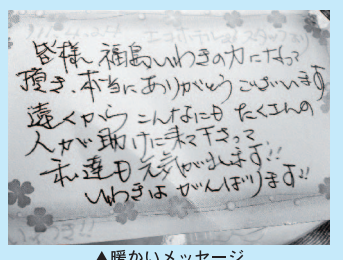 皆様 福島いわきの力になって
頂き、本当にありがとうございます
遠くから こんなにも たくさんの
人が助けに来て下さって
私達も元気がでます!!
いわきはがんばります!!
▲暖かいメッセージ